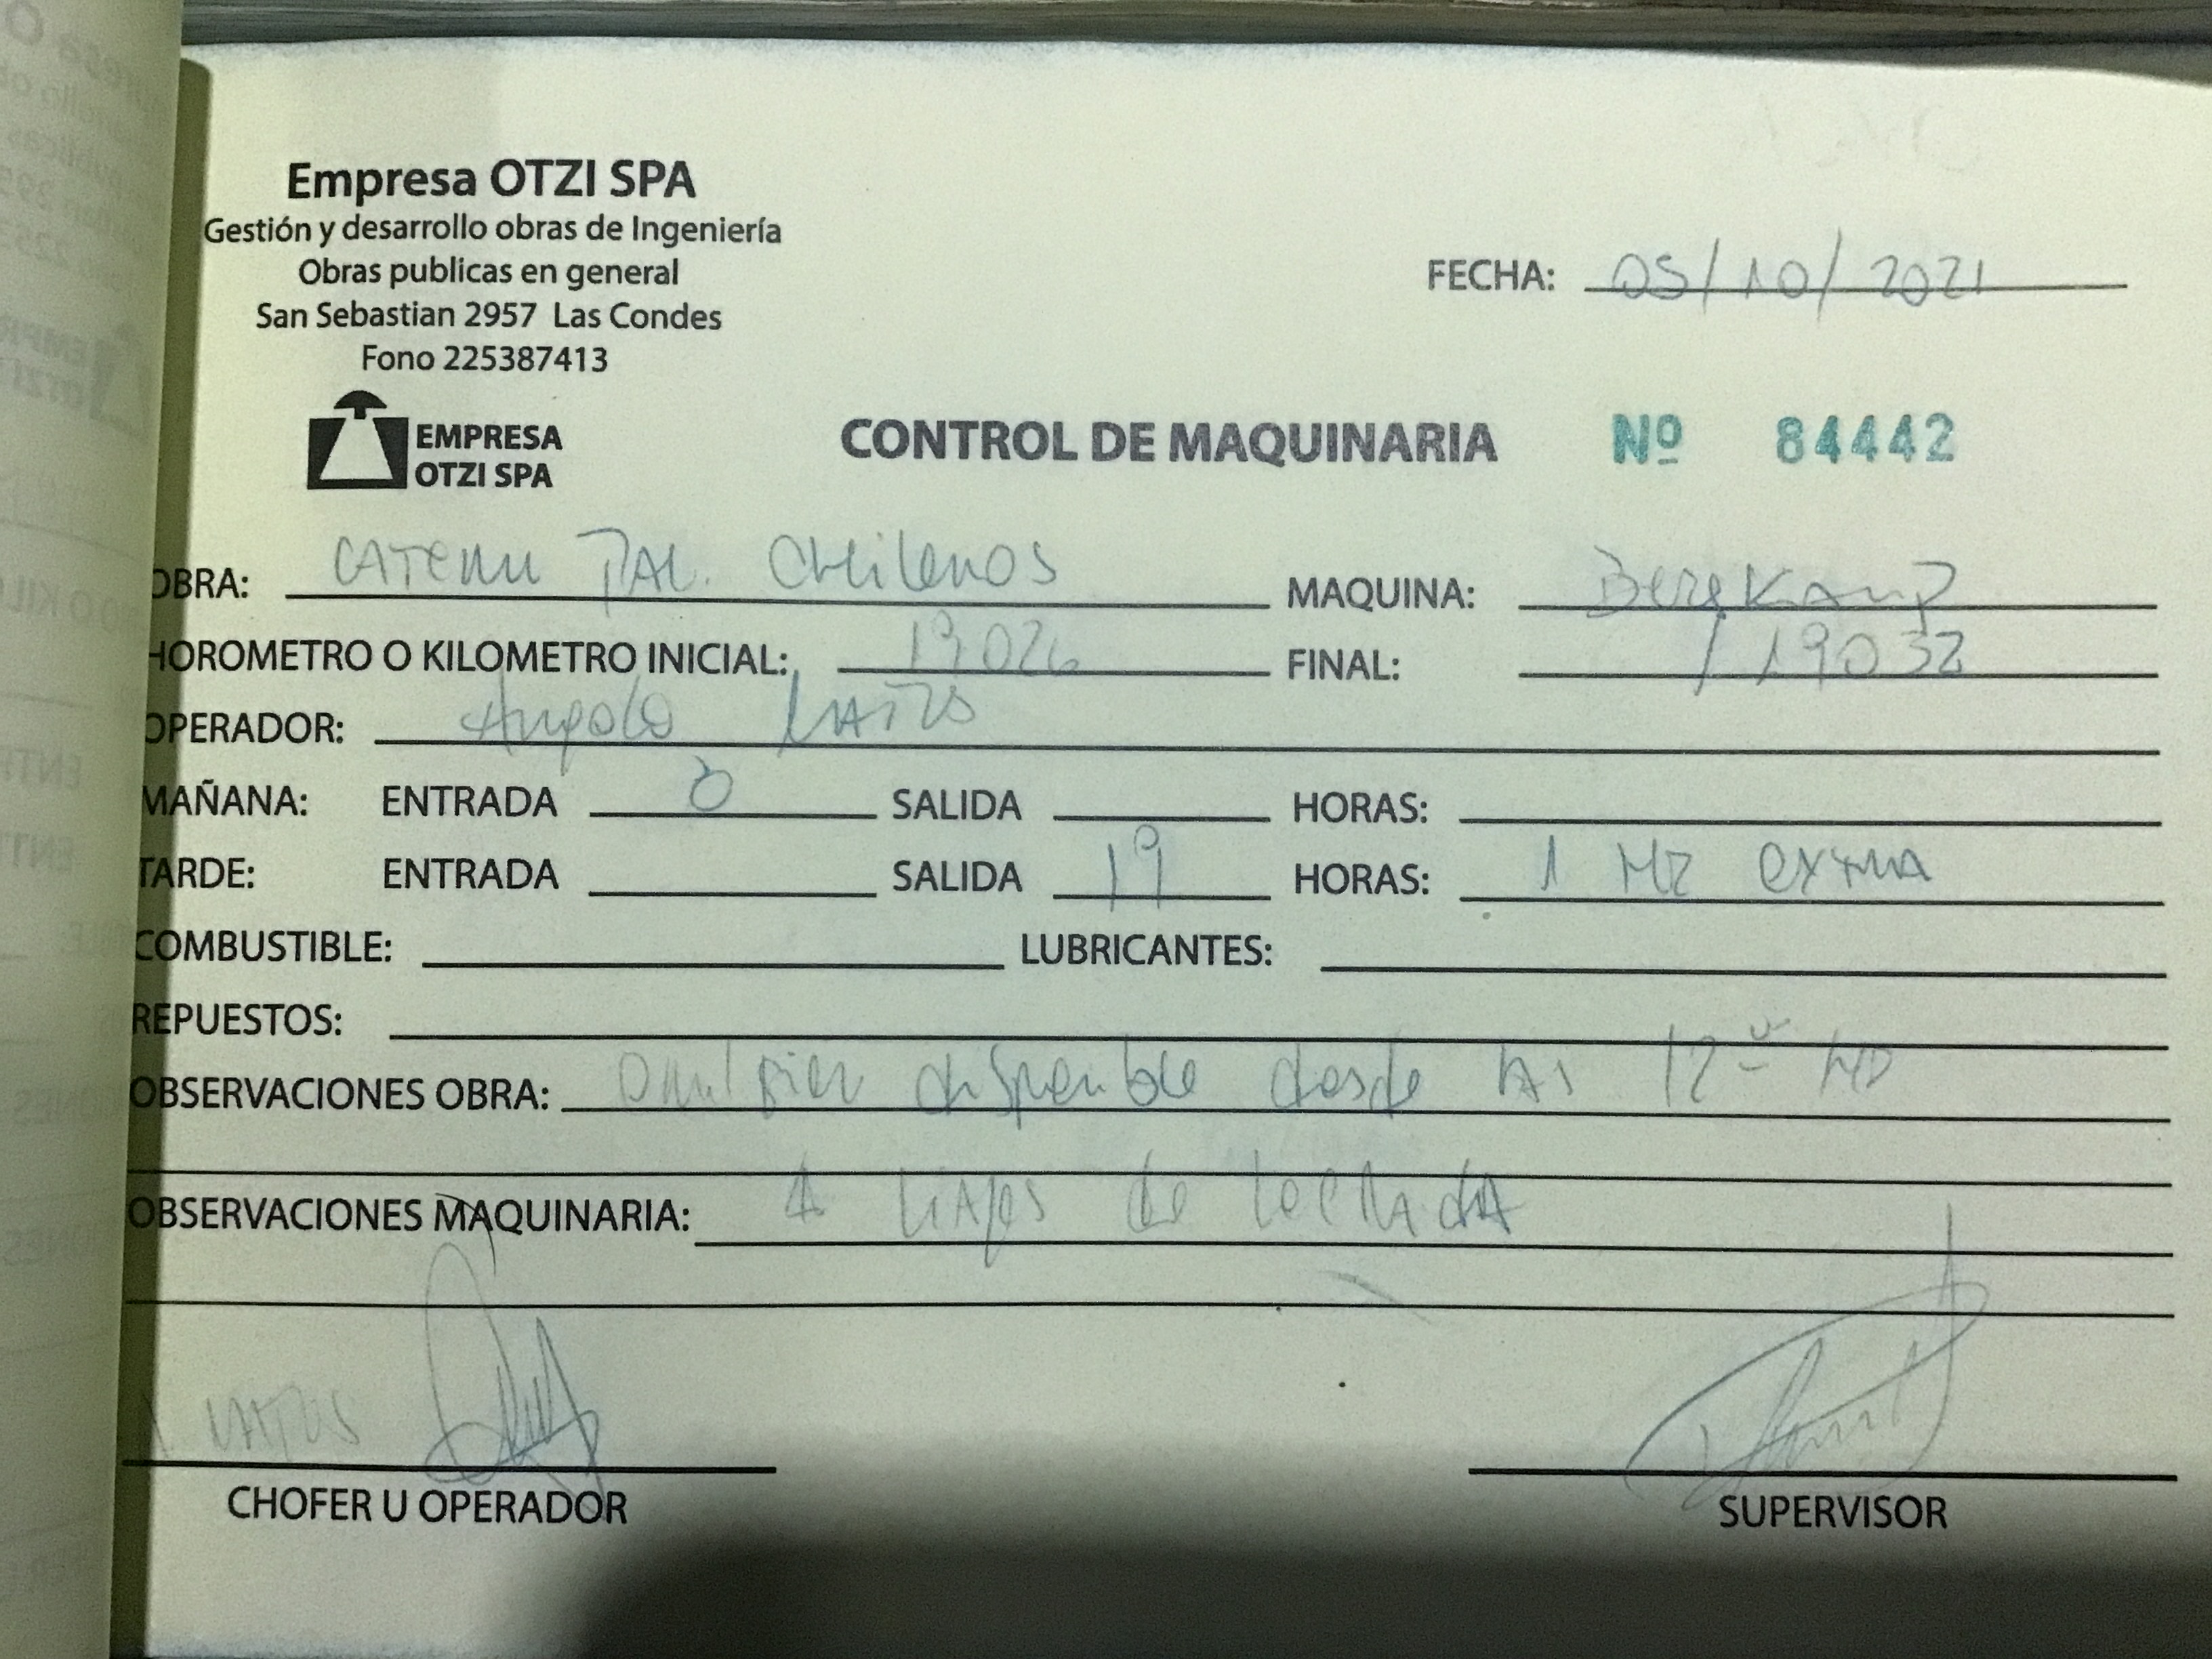 Empresa OTZI SPA
Gestión y desarrollo obras de Ingeniería
Obras publicas en general
San Sebastian 2957 Las Condes
Fono 225387413
FECHA: 05/10/2021
EMPRESA
OTZI SPA
CONTROL DE MAQUINARIA Nº 84442
OBRA: CATEMU PAL. CHilenos MAQUINA: BergKamp
HOROMETRO O KILOMETRO INICIAL: 19026 FINAL: / 19032
OPERADOR: Angelo
MAÑANA: ENTRADA 8 SALIDA HORAS:
TARDE: ENTRADA SALIDA 19 HORAS: 1 Hr extra
COMBUSTIBLE: LUBRICANTES:
REPUESTOS:
OBSERVACIONES OBRA: disponible desde las 12
OBSERVACIONES MAQUINARIA: 4 viajes de lechada
CHOFER U OPERADOR
SUPERVISOR